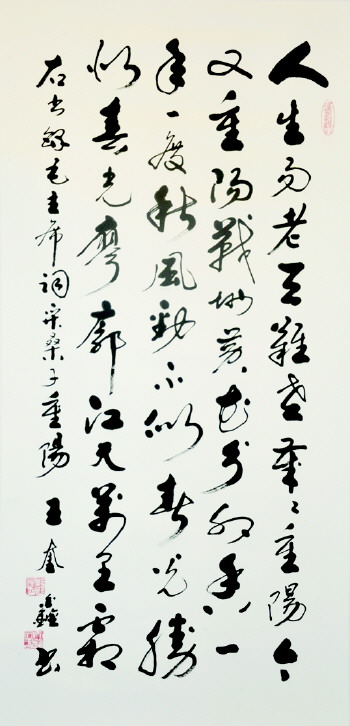 人生易老天難老歲〻重陽今
又重陽戰地黃花分外香一
年一度秋風勁不似春光勝
似春光廖廓江天萬里霜
右書錄毛主席詞采桑子重陽 王奎書